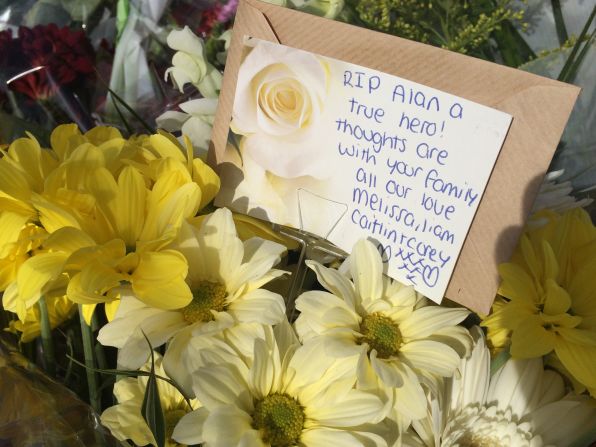 RIP Alan a
true hero!
thoughts are
with your family
all our love
melissa, liam
caitlin+corey
xxxx